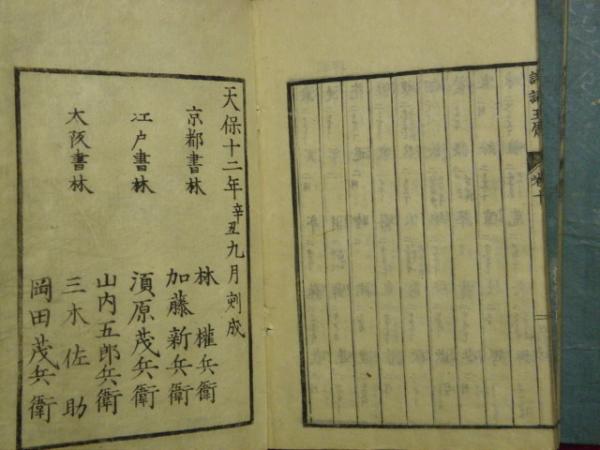 天保十二年辛丑九月刻成
京都書林
林權兵衛
加藤新兵衛
江戸書林
須原茂兵衛
山内五郎兵衛
大阪書林
三木佐助
岡田茂兵衛
卷十